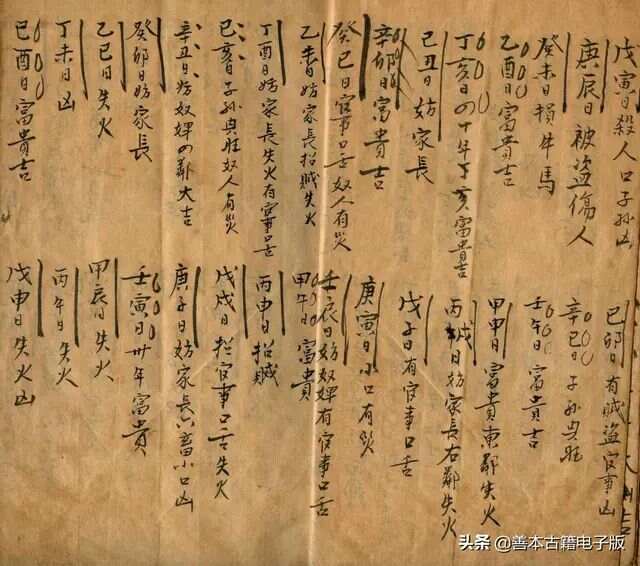 戊寅日殺人口子孫凶
己卯日有賊盜官事凶
庚辰日被盜傷人
辛巳日子孫興旺
癸未日損牛馬
壬午日富貴吉
乙酉日富貴吉
甲申日富貴東鄰失火
丁亥日四十年丁亥富貴吉
丙戌日妨家長右鄰失火
己丑日妨家長
戊子日有官事口舌
辛卯日富貴吉
庚寅日小口有災
癸巳日官事口舌奴人有災
壬辰日妨奴婢有官事口舌
乙未日妨家長招賊失火
甲午日富貴
丁酉日妨家長失火有官事口舌
丙申日招賊
己亥日子孫興旺奴人有災
戊戌日招官事口舌失火
辛丑日妨奴婢四鄰大吉
庚子日妨家長六畜小口凶
癸卯日妨家長
壬寅日卅年富貴
乙巳日失火
甲辰日失火
丁未日凶
丙午日失火
己酉日富貴吉
戊申日失火凶
头条 @善本古籍电子版